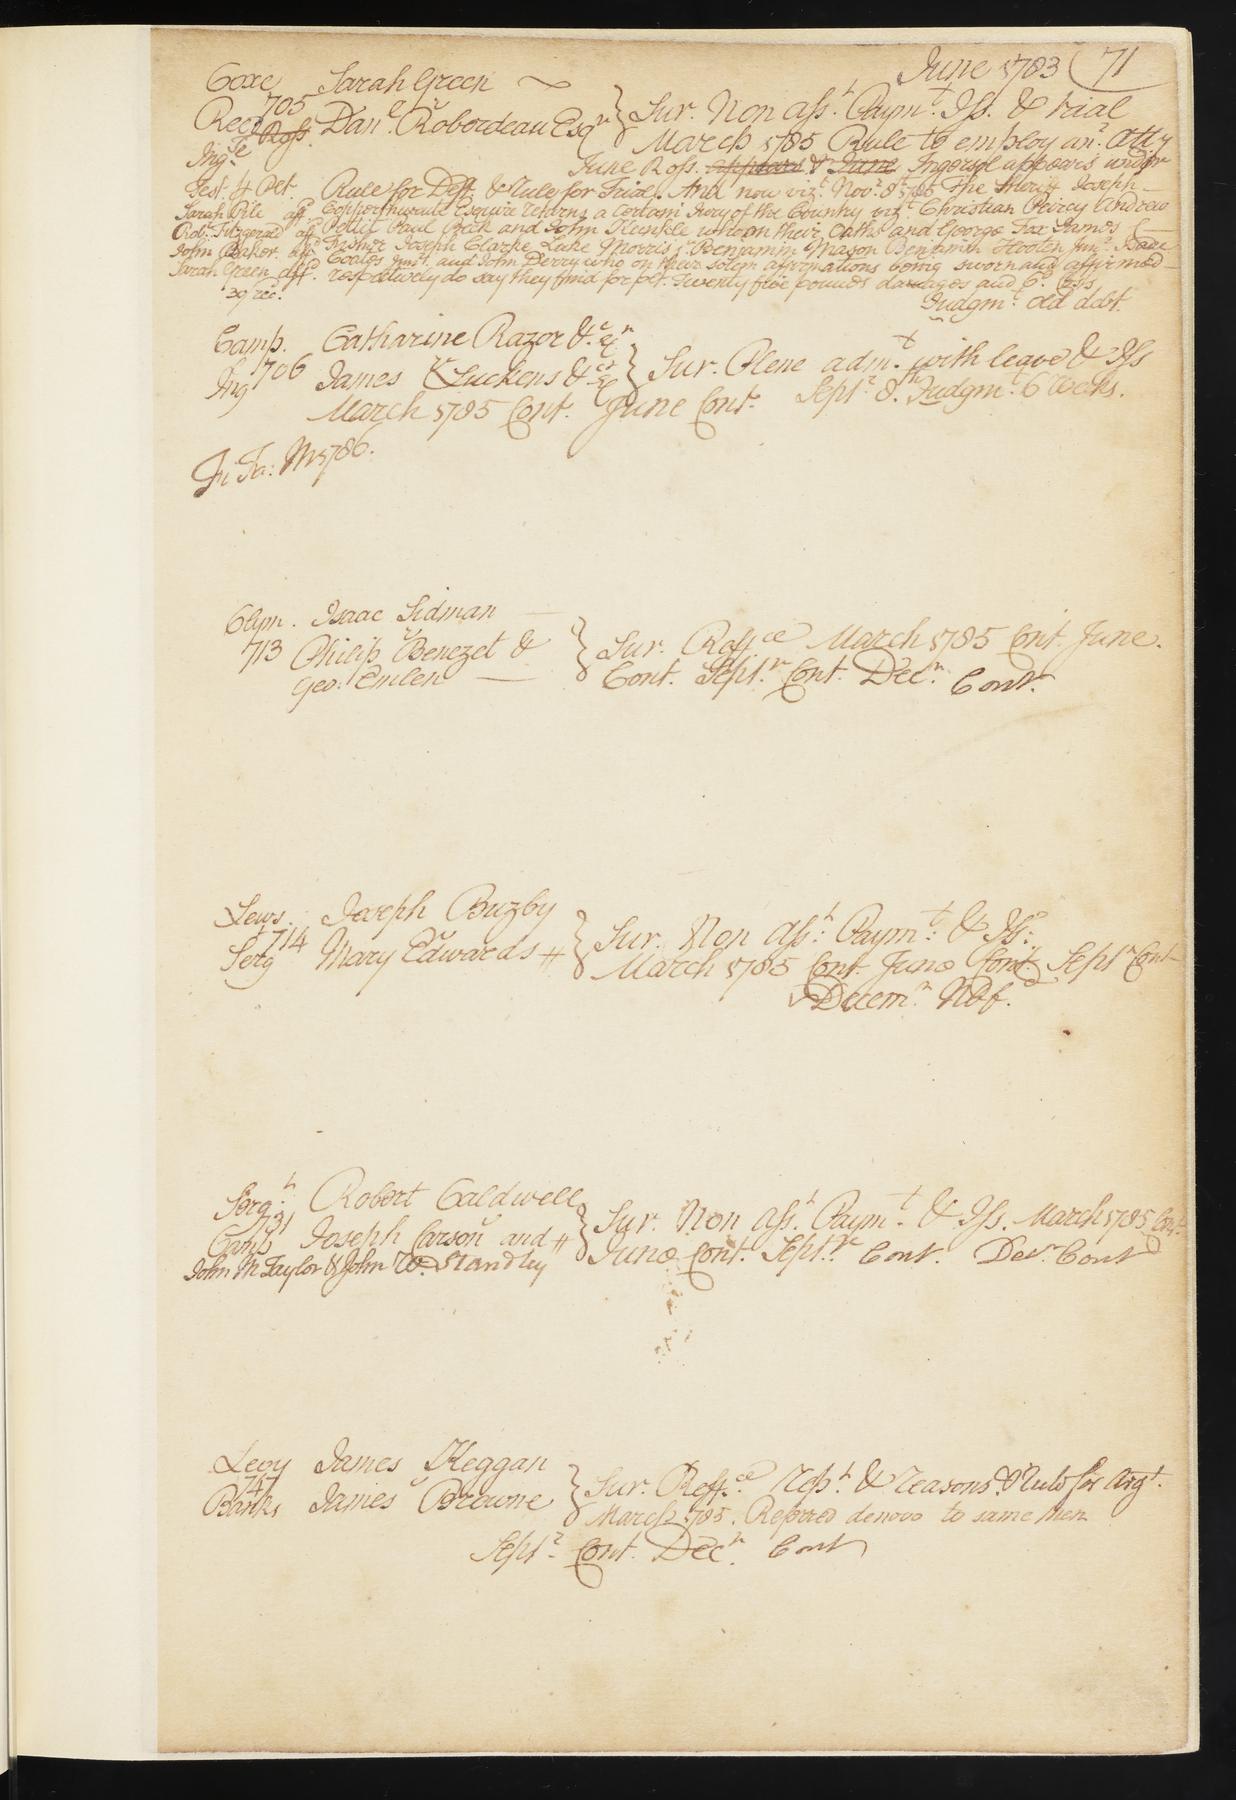 June 1783 71
Coxe Sarah Green
705
Reed Ross Danl. v Roberdeau Esqr
Sur. Non Ass.t Paym.t Iss. & trial
March 1785 Rule to employ an.r Atty
Ing.se June Ross appears & June Ingersol appears under
Test. p Plt. Rule for Deft. & Rule for Trial. And now viz.t Nov.r 8th 1785 the Sheriff Joseph
Sarah Pile aff.d Copperthwaite Esquire returns a certain Jury of the Country viz.t Christian Piercy Andrew
Rob.t Fitzgerald aff.d Pettit Paul Beck and John Kunkle who on their oaths and George Fox James C
John Baker aff.d Joseph Clarke Luke Morris Benjamin Mason Benjamin Hooten Jun.r Isaac
Sarah Green aff.d Coates Jun.r and John Perry who on their solem affirmations being sworn and affirmed
respectively do say they find for plt. Twenty five pounds damages and 6.d Costs
Judgm.t old debt.
Camp. Catharine Razor &c.
706
Ing James v Luckens &c.
Sur. Plene adm.t with leave & Iss
March 1785 Cont. June Cont. Sept.r 8.th Judgm.t 6 Weeks.
Fi Fa: M 1786.
Clym. Isaac Sidman
713 Philip v Benezet &
Geo: Emlen
Sur. Reff.ce March 1785 Cont. June.
Cont. Sept.r Cont. Dec.r Cont.
Lews. Joseph Buzby
714
Serg Mary v Edwards
Sur. Non Ass.t Paym.t & Iss:
March 1785 Cont. June Cont. Sept.r Cont
Decem.r Nbf.
Serg.t Robert Caldwell
731
Camp Joseph v Carson and
John M Taylor & John W. Standley
Sur. Non Ass.t Paym.t & Iss. March 1785 Cont.
June Cont. Sept.r Cont. Dec.r Cont
Levy James Keggan
747
Banks James v Browne
Sur. Reff.ce Rep.t & reasons & Rule for Arg.t.
March 1785. Referred denovo to same Men
Sept.r Cont. Dec.r Cont